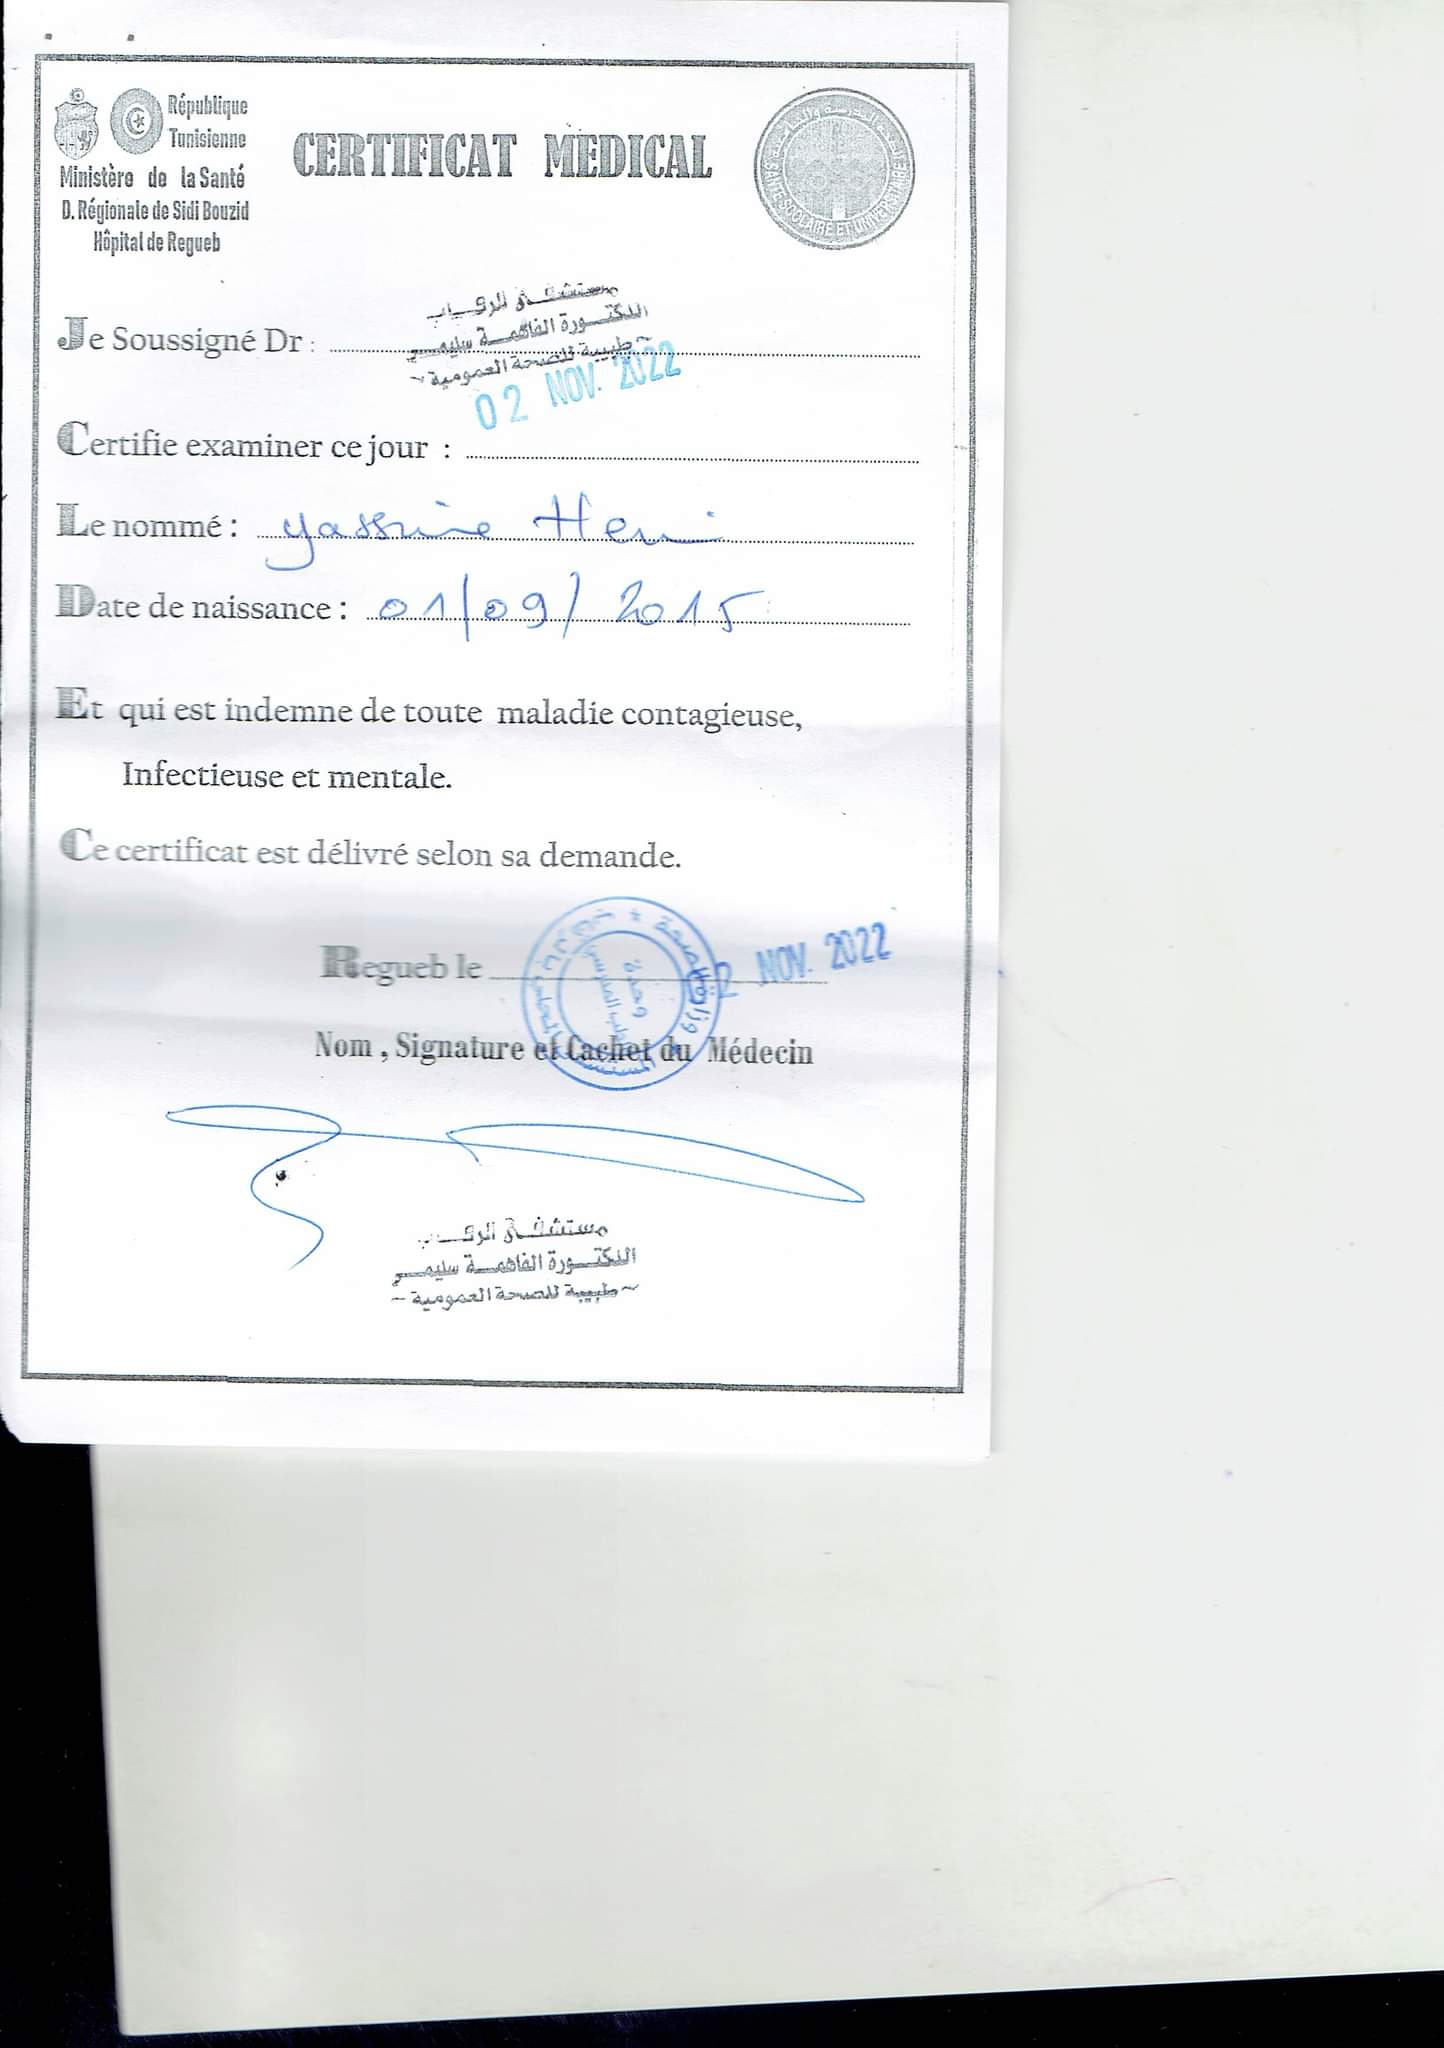 République
Tunisienne
Ministère de la Santé
D. Régionale de Sidi Bouzid
Hôpital de Regueb
CERTIFICAT MEDICAL
SANTE SCOLAIRE ET UNIVERSITAIRE
Je Soussigné Dr :
مستشفى الرقاب
الدكتورة الفاهمة سليمي
~ طبيبة للصحة العمومية ~
02 NOV. 2022
Certifie examiner ce jour :
Le nommé : Yassine Heni
Date de naissance : 01/09/2015
Et qui est indemne de toute maladie contagieuse,
Infectieuse et mentale.
Ce certificat est délivré selon sa demande.
Regueb le 2 NOV. 2022
وزارة الصحة
وحدة
Nom , Signature et Cachet du Médecin
مستشفى الرقاب
الدكتورة الفاهمة سليمي
~ طبيبة للصحة العمومية ~